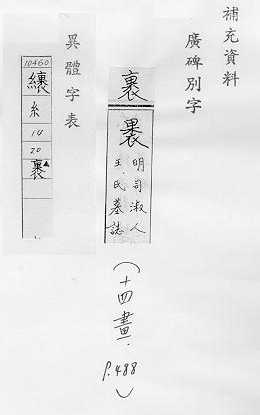 補充資料
廣碑別字
裹
褁
明司淑人
王氏墓誌
(十四畫．
P.488)
異體字表
10460
糸
14
20
裹